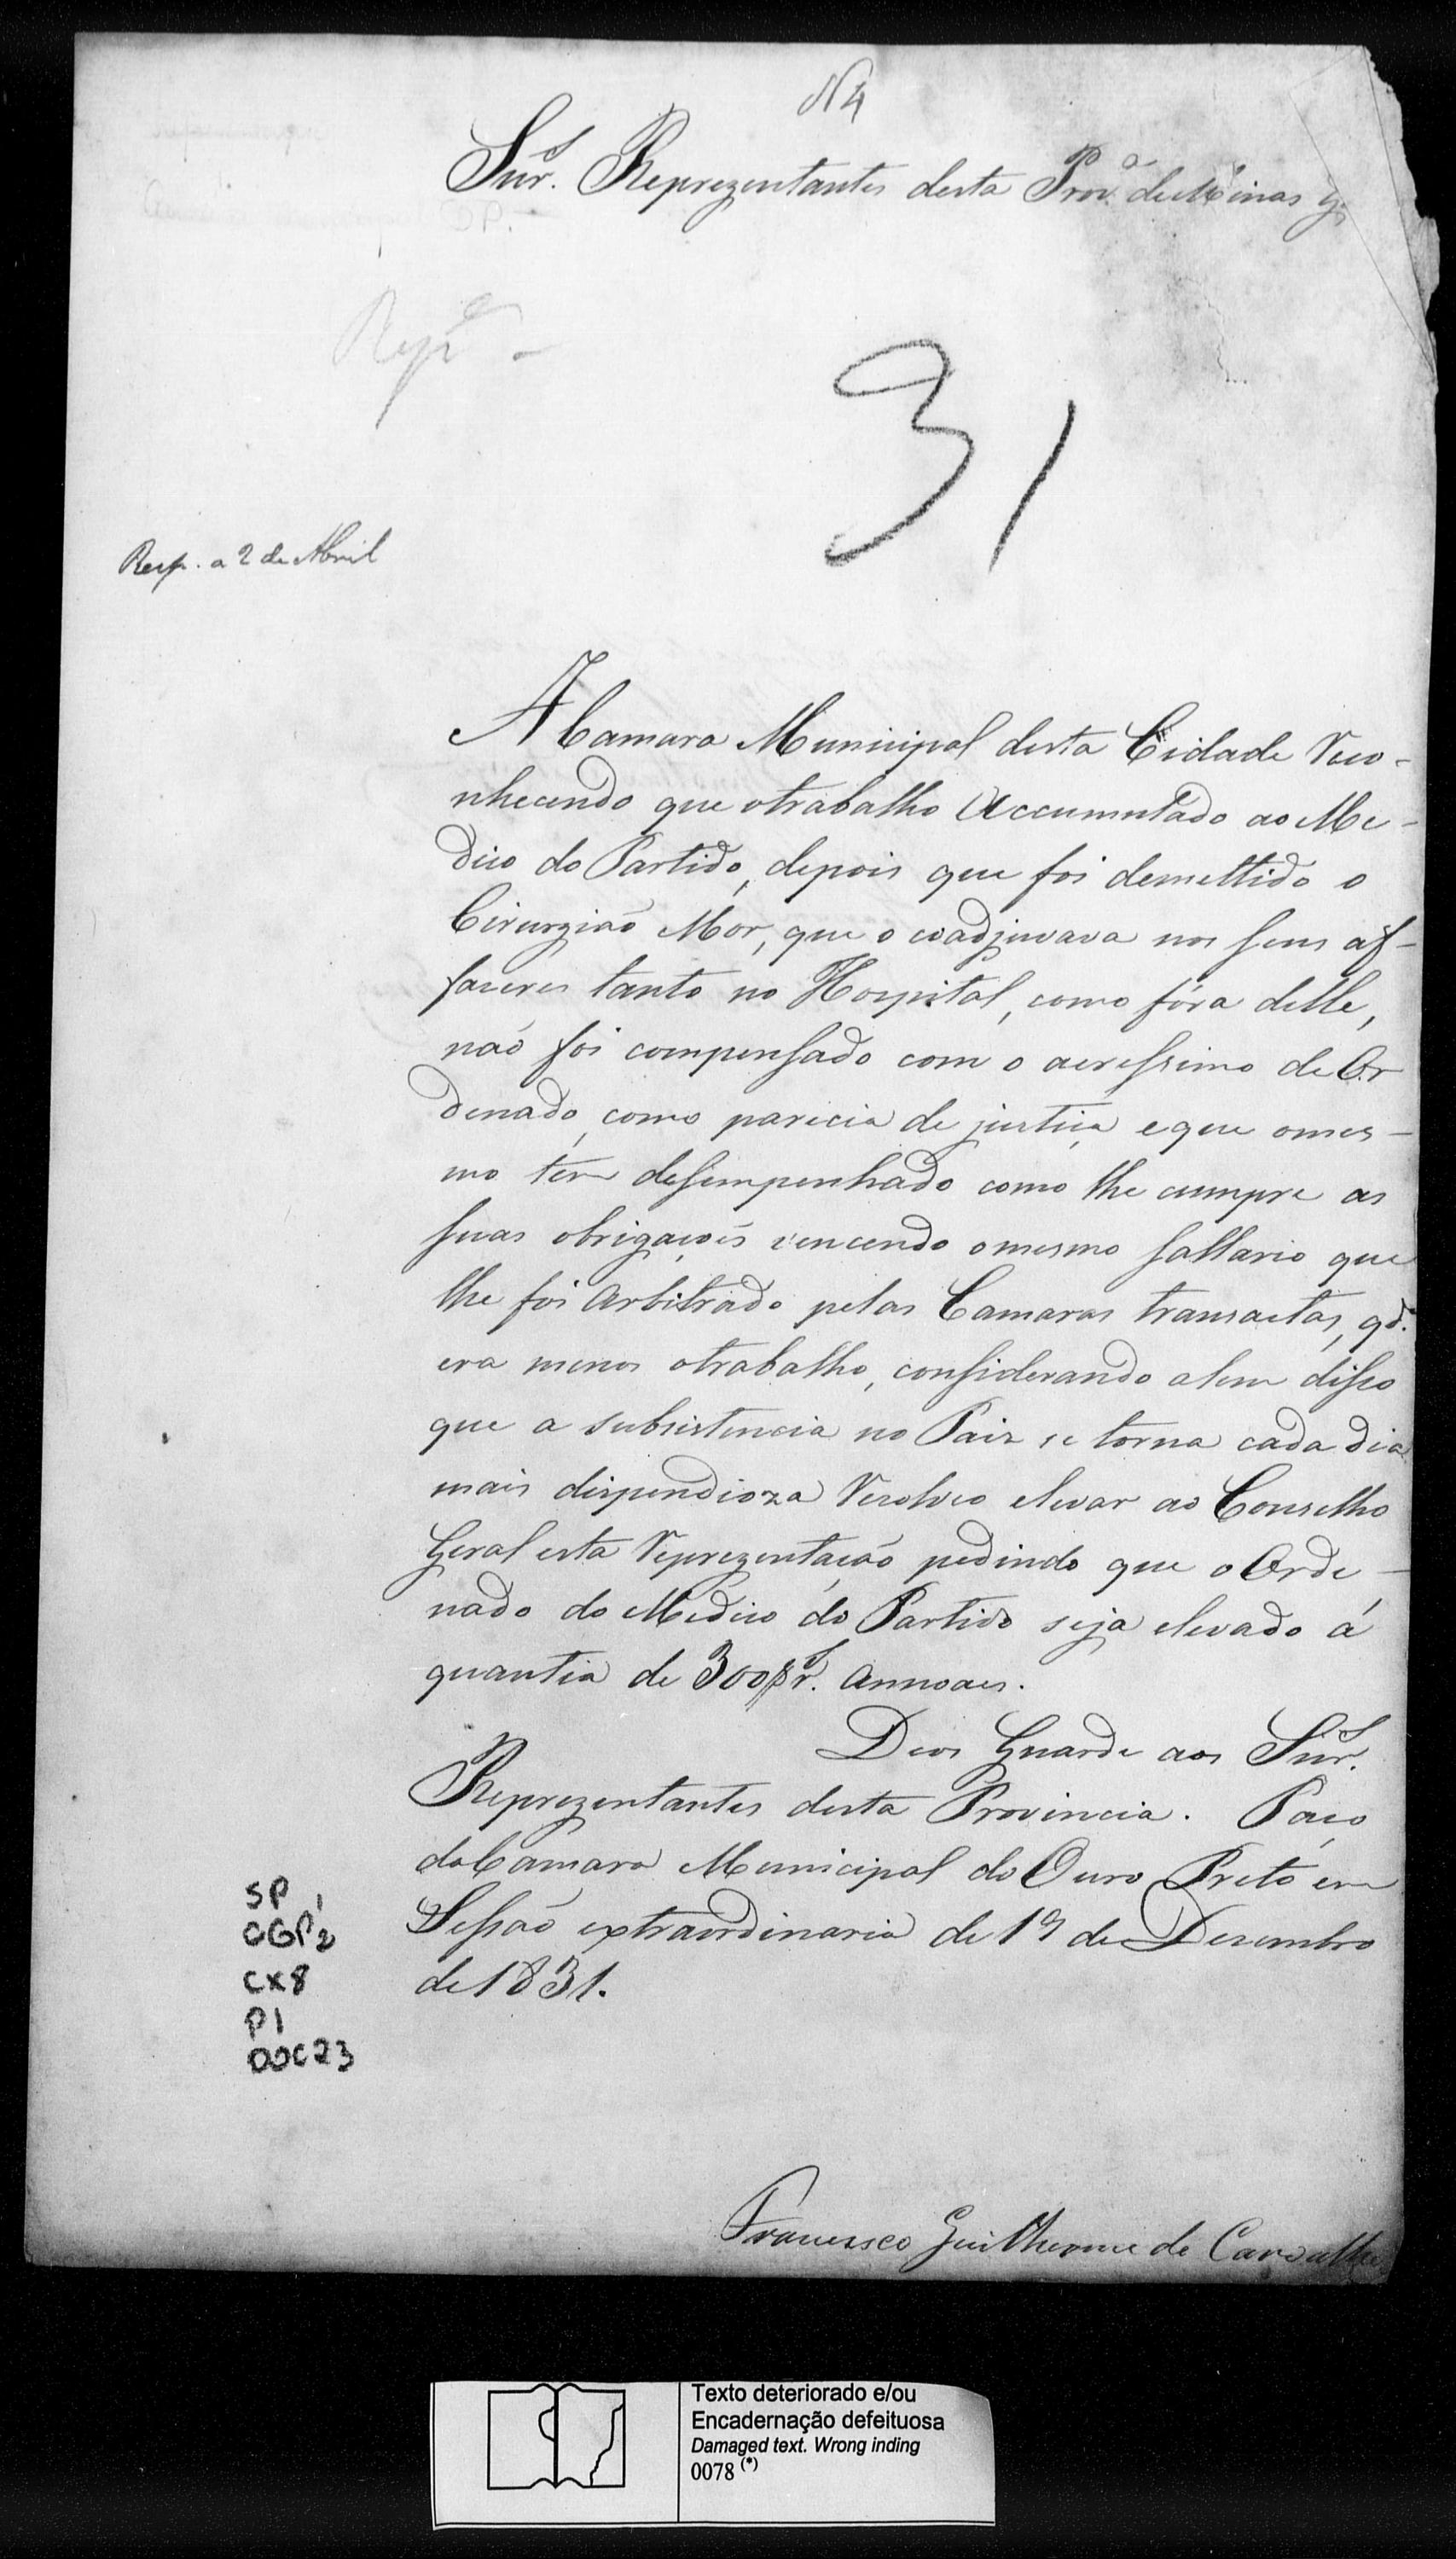 N 4
Snr.s Reprezentantes desta Prov.a de Minas G.s
Rep.am
31
Resp. a 2 de Abril
A Camara Municipal desta Cidade Reco-
nhecendo que o trabalho Accumulado ao Me-
dico do Partido, depois que foi demettido o
Cirurgiaõ Mor, que o coadjuvava nos seus af-
fazeres tanto no Hospital, como fóra delle,
naõ foi compensado com o acressimo de Or
denado, como parecia de justiça e que o mes-
mo tem desempenhado como lhe cumpre as
suas obrigaçoẽs vencendo o mesmo sallario que
lhe foi Arbitrado pelas Camaras transactas, qd.o
era menos o trabalho, considerando alem disso
que a subsistencia no Paiz se torna cada dia
mais dispendioza Resolveo elevar ao Conselho
Geral esta Reprezentaçaõ pedindo que o Orde-
nado do Medico do Partido seja elevado á
quantia de 300$r.s Annoaes.
Deos Guarde aos Snr.s
Reprezentantes desta Provincia. Paço
da Camara Municipal do Ouro Preto em
Sessaõ extraordinaria de 19 de Dezembro
de 1831.
SP 1
CGP2
CX8
P1
DOC23
Francisco Guilherme de Carvalho
Texto deteriorado e/ou
Encadernação defeituosa
Damaged text. Wrong inding
0078 (*)